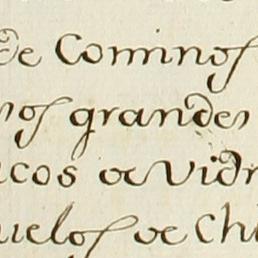 de Cominos
nos grandes
cos de Vidr
uelos de Chi